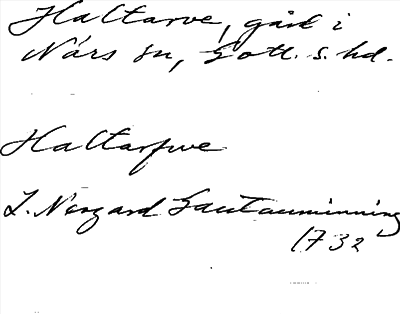 Haltarve, gård i
Närs sn, Gotl. s. hd.
Haltarfwe
L. Nergard Gautauminning
1732